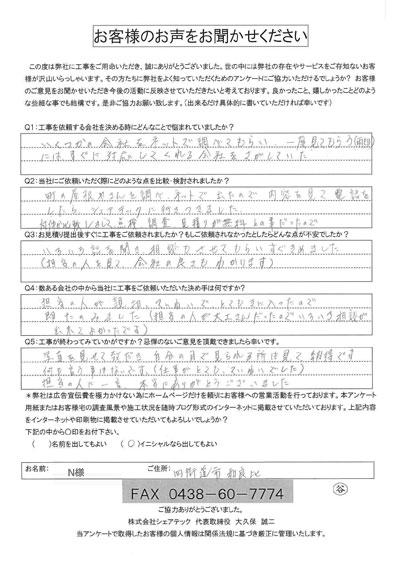 お客様のお声をお聞かせください
この度は弊社に工事をご用命いただき、誠にありがとうございました。世の中には弊社の存在やサービスをご存知ないお客
様が沢山いらっしゃいます。その方たちに弊社をよく知っていただくためのアンケートにご協力いただけるでしょうか? お客様
のご意見をお聞かせいただき今後の活動に反映させていただきたいと考えております。良かったこと、嬉しかったことどのよう
な些細な事でも結構です。是非ご協力お願い致します。(出来るだけ具体的に書いていただければ幸いです)
Q1:工事を依頼する会社を決める時にどんなことで悩まれていましたか?
いくつかの会社をネットで調べてもらい 一度見てもらう
にはすぐに対応してくれる会社をさがしていた
Q2:当社にご依頼いただく際にどのような点を比較・検討されましたか?
町の屋根やさんを調べ ネットで出たので 内容を見て 電話を
したら シェアテックに行きつきました
点検 調査 見積りが無料との事だったので
Q3:お見積り提出後すぐに工事をご依頼されましたか?もしご依頼されなかったとしたらどんな点が不安でしたか?
いろいろ話を聞き、相談力させてもらいすぐきめました
(担当の人を見て、会社の良さもわかります)
Q4:数ある会社の中から当社に工事をご依頼いただいた決め手は何ですか?
担当の人が親切、ていねいで、とても気に入ったので
頼みました(担当の人が大工さんだったのでいろいろ相談が
出来てよかったです)
Q5:工事が終わってみていかがですか?忌憚のないご意見を頂戴できましたら幸いです。
写真を見せて頂だき 自分の目で見られる所は見て 納得です
何も言う事はないです。(仕事がとても、ていねいでした)
担当の人に一言、本当にありがとうございました
*弊社は広告宣伝費を極力かけない為にホームページだけを頼りにお客様への営業活動を行っております。本アンケート
用紙またはお客様宅の調査風景や施工状況を随時ブログ形式のインターネットに掲載させていただいております。上記内容
をインターネットや印刷物に掲載させていただいてもよろしいでしょうか?
下記の中から〇印をお付下さい。
( )名前を出してもよい (○)イニシャルなら出してもよい
お名前: N様 ご住所: 四街道市 和良比
FAX 0438-60-7774
谷
ご協力ありがとうございました。
株式会社シェアテック 代表取締役 大久保 誠二
当アンケートで取得したお客様の個人情報は関係法規に基づき厳正に管理いたします。